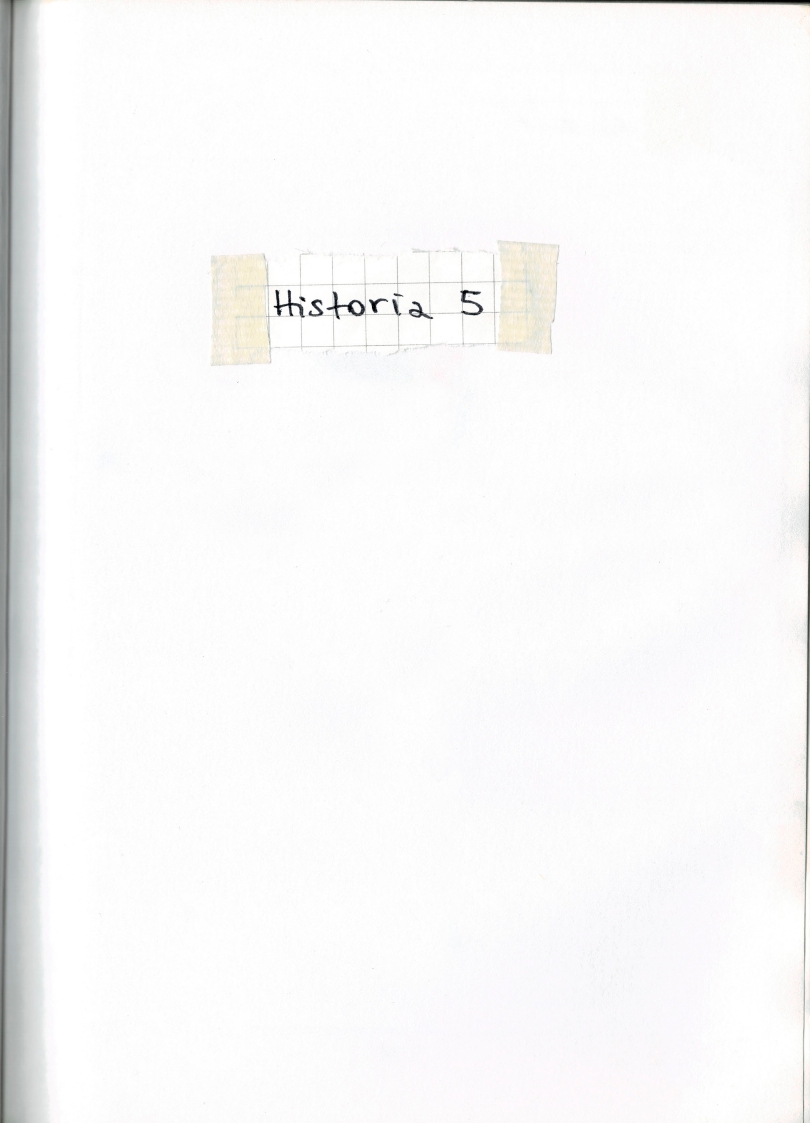 Historia 5